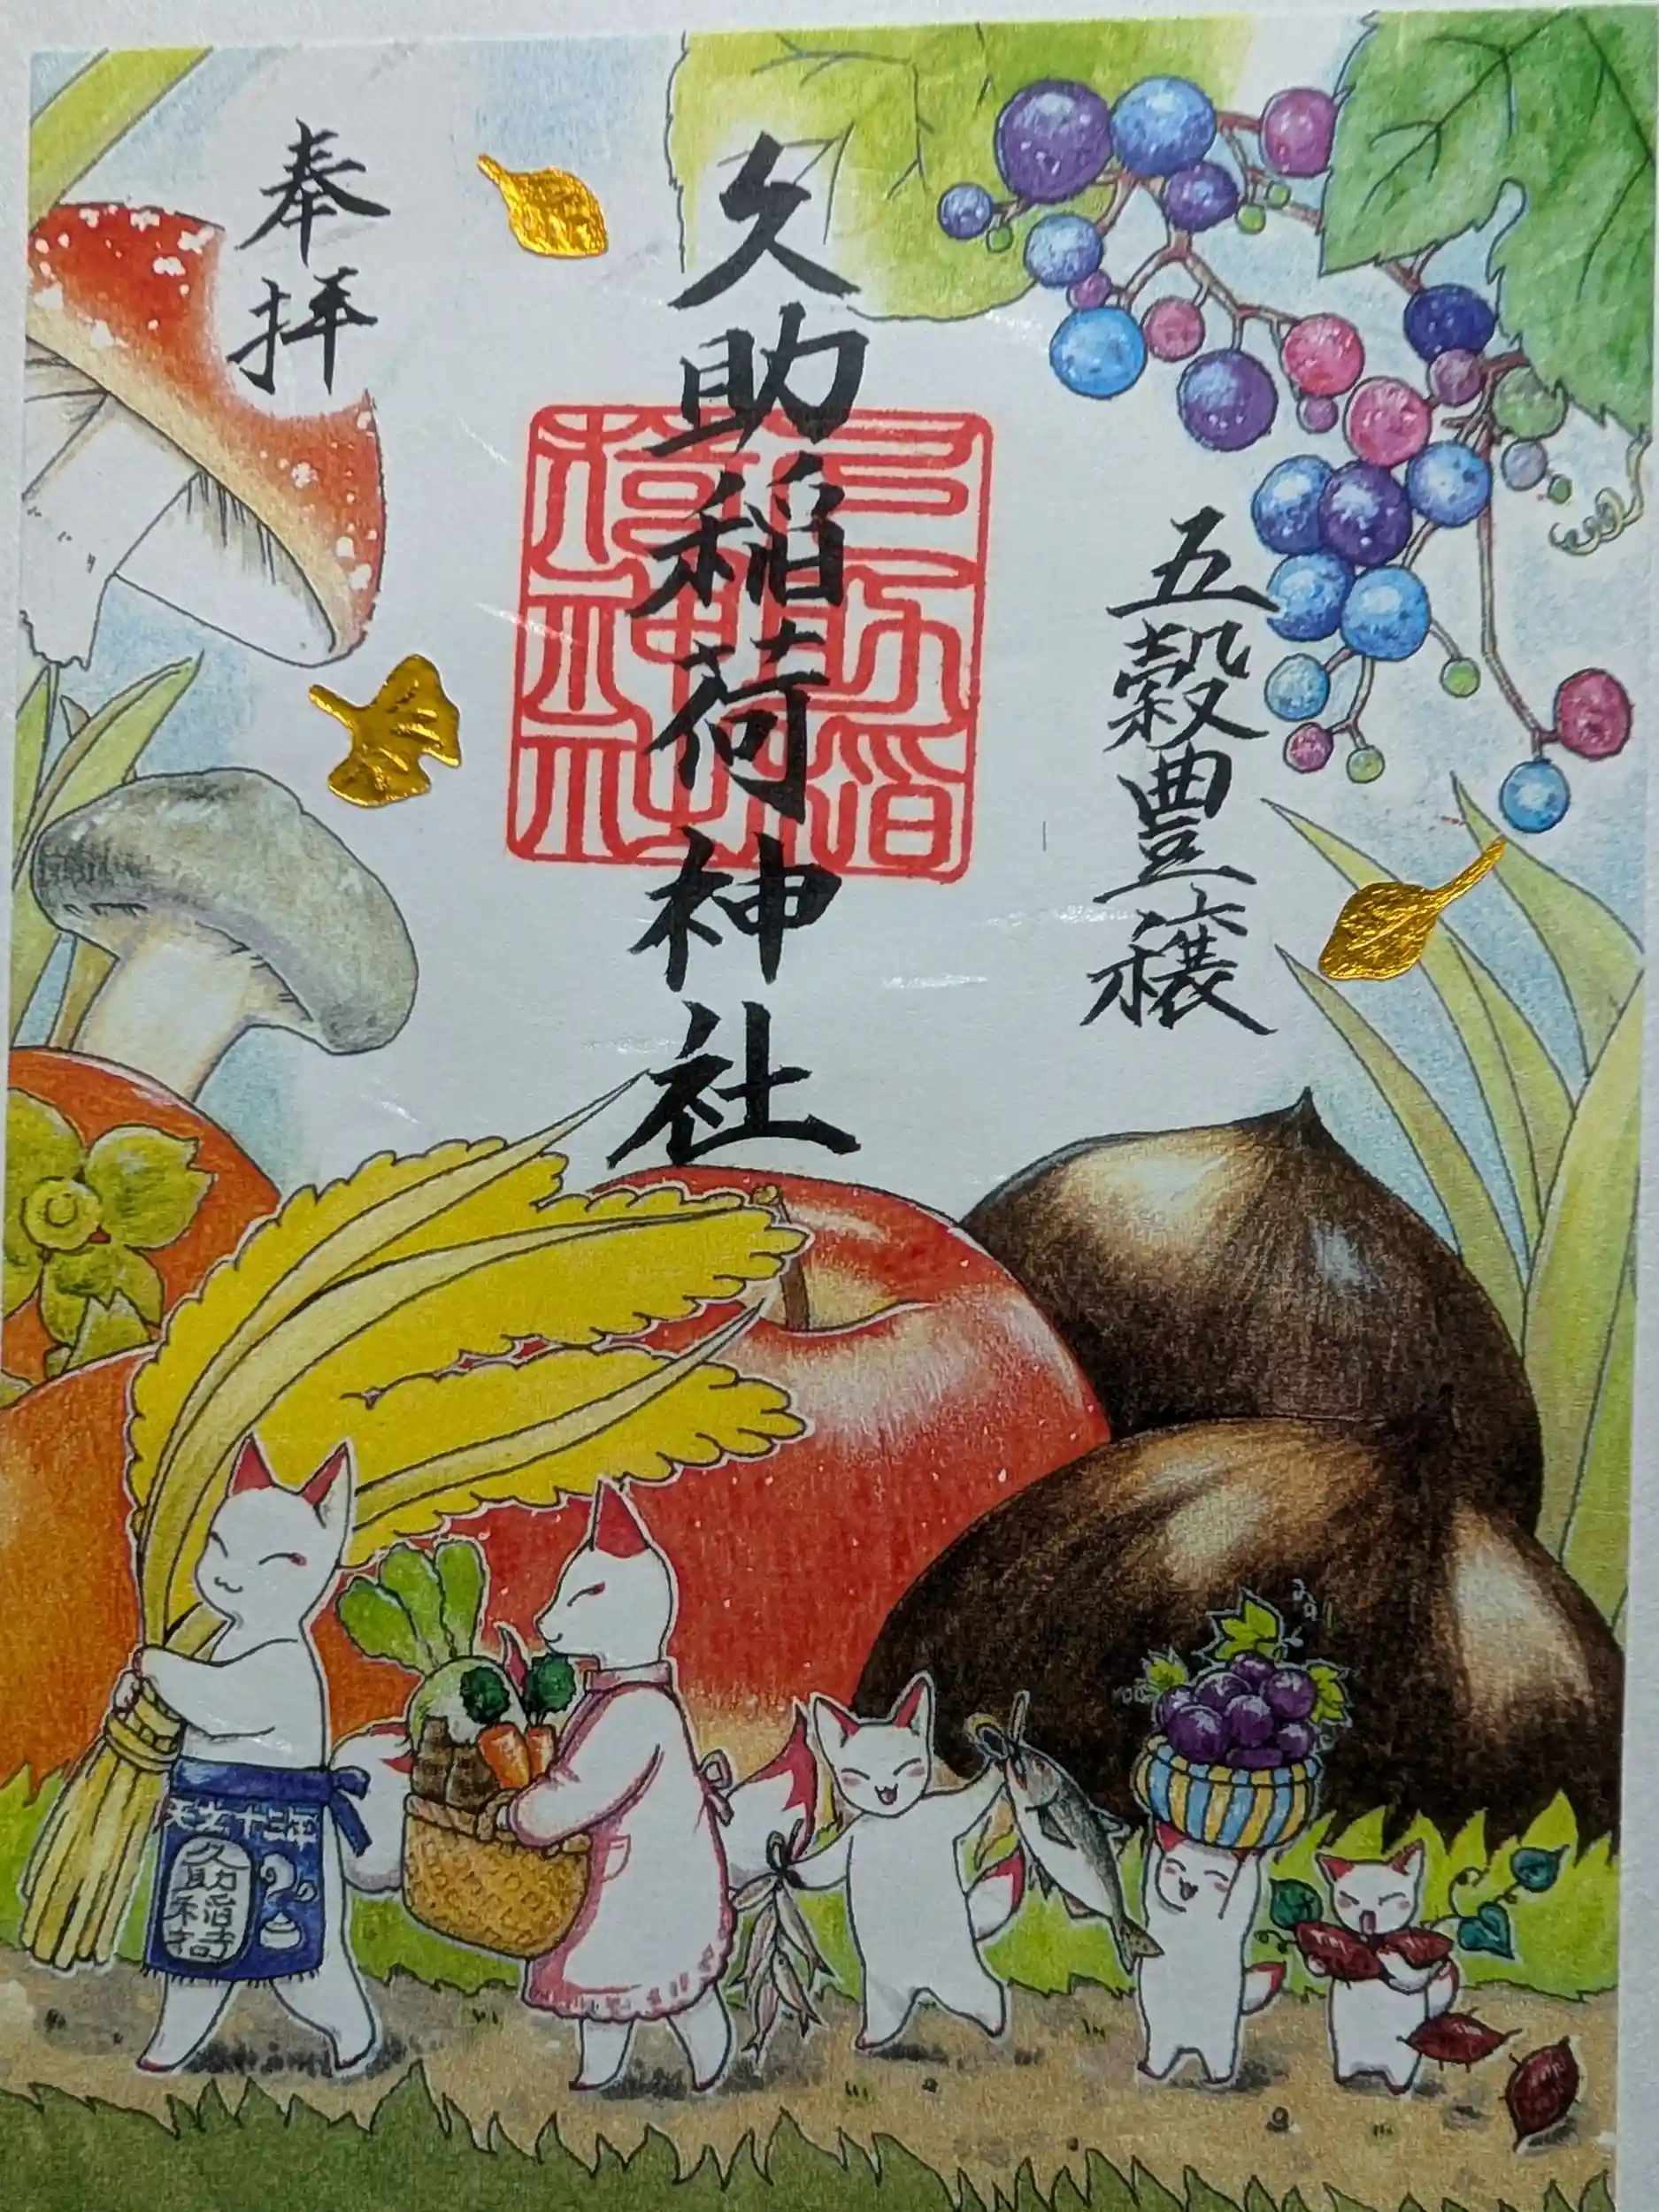 五穀豊穣
久助稲荷神社
奉拝
久助稲荷